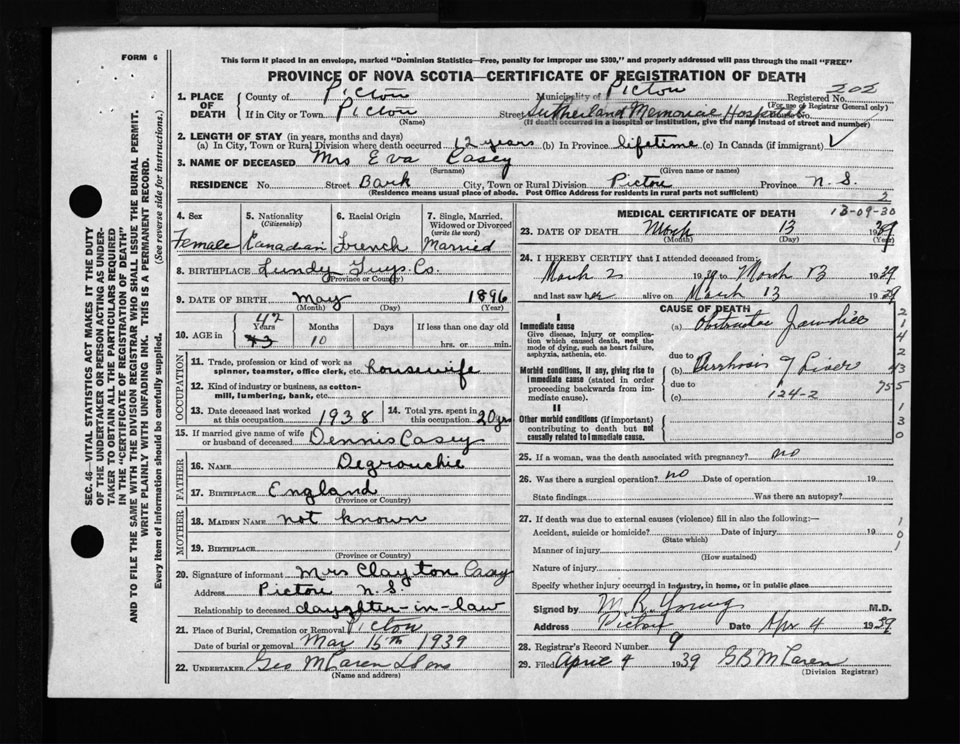 FORM 6
This form if placed in an envelope, marked "Dominion Statistics—Free, penalty for improper use $300," and properly addressed will pass through the mail "FREE"
PROVINCE OF NOVA SCOTIA—CERTIFICATE OF REGISTRATION OF DEATH
1. PLACE OF DEATH
County of Pictou Municipality of Pictou Registered No. 202
(For use of Registrar General only)
If in City or Town Pictou Street Sutherland Memorial Hospital No.
(Name) (If death occurred in a hospital or institution, give the name instead of street and number)
2. LENGTH OF STAY (in years, months and days)
(a) In City, Town or Rural Division where death occurred 12 years (b) In Province lifetime (c) In Canada (if immigrant) ✓
3. NAME OF DECEASED Mrs Eva Casey
(Surname) (Given name or names)
RESIDENCE No. Street Bark City, Town or Rural Division Pictou Province N. S.
(Residence means usual place of abode. Post Office Address for residents in rural parts not sufficient)
4. Sex 5. Nationality (Citizenship) 6. Racial Origin 7. Single, Married, Widowed or Divorced (write the word)
Female Canadian French Married
8. BIRTHPLACE Lundy Guys. Co.
(Province or County)
9. DATE OF BIRTH May 1896
(Month) (Day) (Year)
10. AGE in Years Months Days If less than one day old
42 43 10 hrs. or min.
OCCUPATION
11. Trade, profession or kind of work as spinner, teamster, office clerk, etc. housewife
12. Kind of industry or business, as cotton-mill, lumbering, bank, etc.
13. Date deceased last worked at this occupation 1938 14. Total yrs. spent in this occupation 20 yrs
15. If married give name of wife or husband of deceased Dennis Casey
FATHER
16. NAME Degrouchie
17. BIRTHPLACE England
(Province or Country)
MOTHER
18. MAIDEN NAME not known
19. BIRTHPLACE
(Province or Country)
20. Signature of informant Mrs Clayton Casey
Address Pictou N. S.
Relationship to deceased daughter-in-law
21. Place of Burial, Cremation or Removal Pictou
Date of burial or removal Mar 15th 1939
22. UNDERTAKER Geo McLaren & Sons
(Name and address)
MEDICAL CERTIFICATE OF DEATH
2
13-09-30
23. DATE OF DEATH March 13 1939
(Month) (Day) (Year)
24. I HEREBY CERTIFY that I attended deceased from:
March 2 1939 to March 13 1939
and last saw her alive on March 13 1939
CAUSE OF DEATH
I
Immediate cause
Give disease, injury or complication which caused death, not the mode of dying, such as heart failure, asphyxia, asthenia, etc.
(a) Obstructive Jaundice
due to
Morbid conditions, if any, giving rise to immediate cause (stated in order proceeding backwards from immediate cause).
(b) Cirrhosis of Liver
due to
(c) 124-2
II
Other morbid conditions (if important) contributing to death but not causally related to immediate cause.
2
1
4
2
43
755
1
3
0
25. If a woman, was the death associated with pregnancy? no
26. Was there a surgical operation? no Date of operation 19
State findings Was there an autopsy?
27. If death was due to external causes (violence) fill in also the following:—
Accident, suicide or homicide? Date of injury 19
(State which)
Manner of injury
(How sustained)
Nature of injury
Specify whether injury occurred in industry, in home, or in public place
1
0
1
Signed by M. R. Young M.D.
Address Pictou Date Apr 4 1939
28. Registrar's Record Number 9
29. Filed April 4 1939 G B McLaren
(Division Registrar)
SEC. 46—VITAL STATISTICS ACT MAKES IT THE DUTY
OF THE UNDERTAKER OR PERSON ACTING AS UNDER-
TAKER TO OBTAIN ALL THE PARTICULARS REQUIRED
IN THE "CERTIFICATE OF REGISTRATION OF DEATH"
AND TO FILE THE SAME WITH THE DIVISION REGISTRAR WHO SHALL ISSUE THE BURIAL PERMIT.
WRITE PLAINLY WITH UNFADING INK. THIS IS A PERMANENT RECORD.
Every item of information should be carefully supplied. (See reverse side for instructions.)